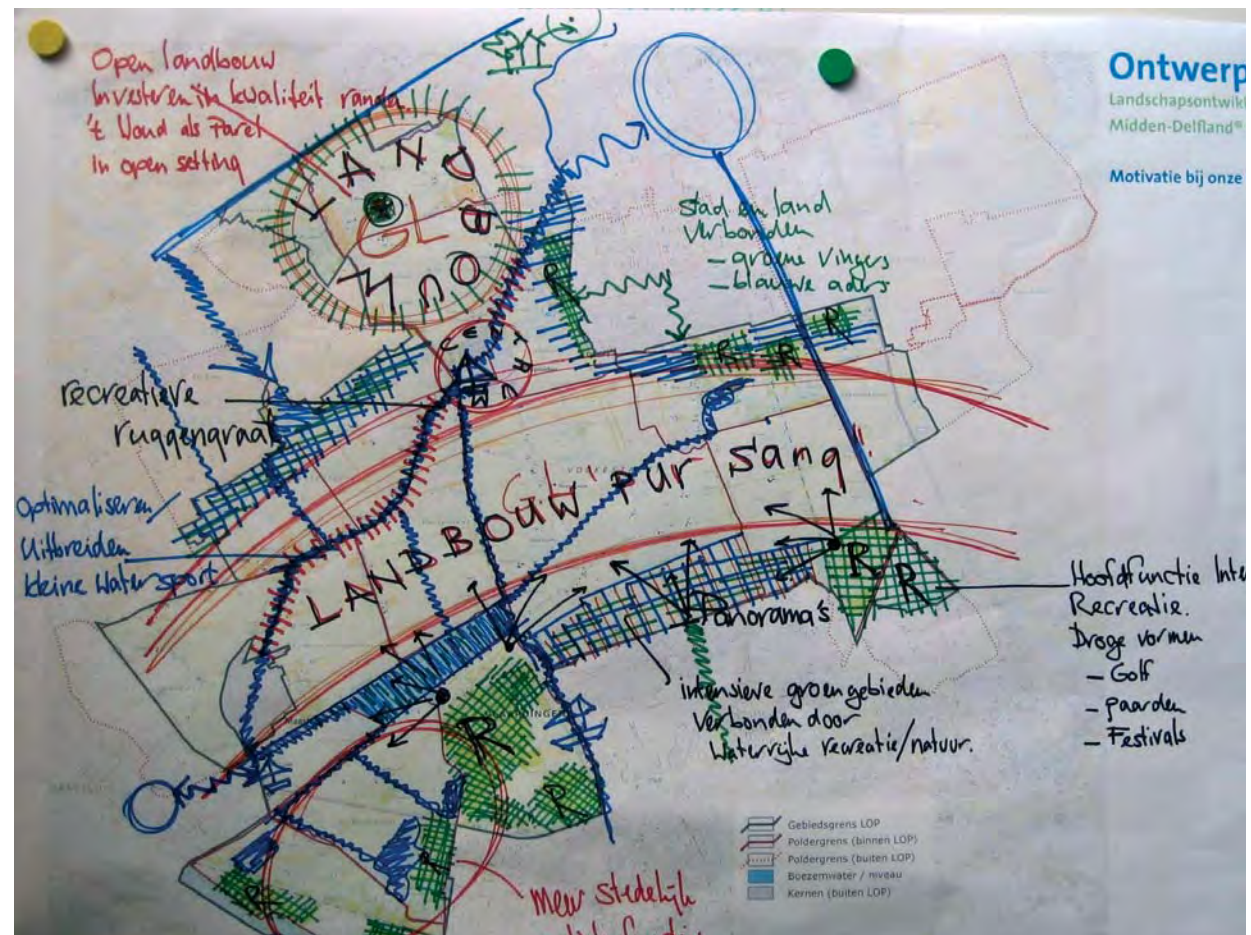 Open landbouw
Investeren in kwaliteit randen
't Woud als Parel
in open setting
Ontwerp
Midden-Delfland®
Motivatie bij onze
LANDBOUW
GL
Stad en land
Verbonden
- groene vingers
- blauwe aders
R
R
R
R
CENTRUM
recreatieve
ruggengraat
Optimaliseren
Uitbreiden
kleine watersport
LANDBOUW pur sang
GL
R
R
Panorama's
Hoofdfunctie Inte
Recreatie.
Droge vormen
- Golf
- paarden
- Festivals
intensieve groengebieden
Verbonden door
Waterrijke recreatie/natuur.
R
R
R
R
Gebiedsgrens LOP
Poldergrens (binnen LOP)
Poldergrens (buiten LOP)
Boezemwater / niveau
Kernen (buiten LOP)
meer stedelijk